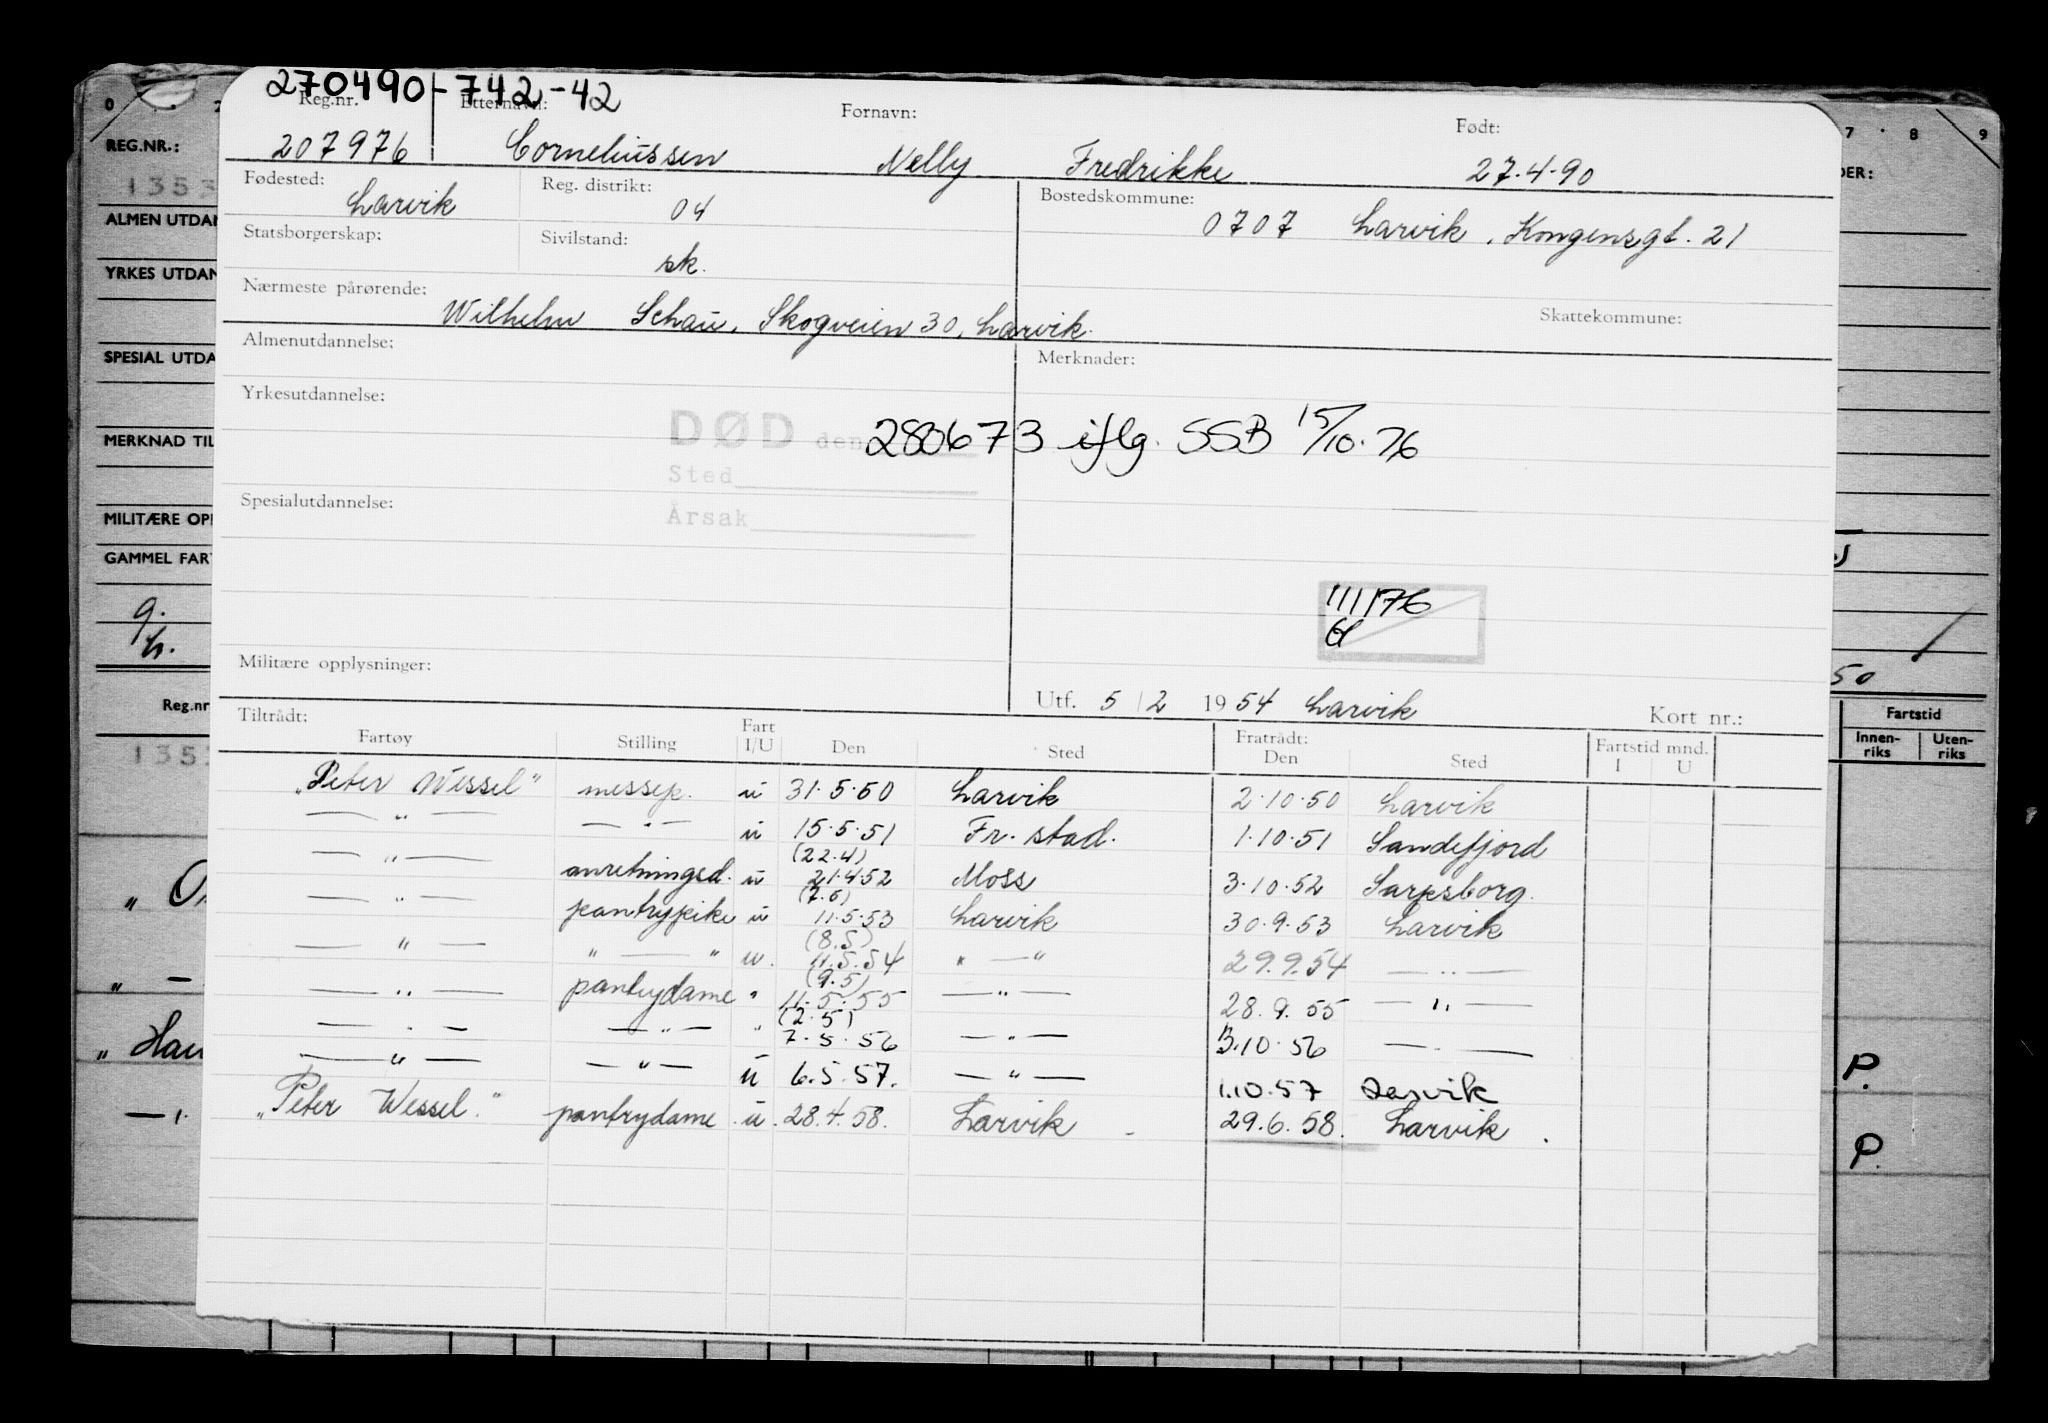 270490-742-42
Reg.nr. Etternavn: Fornavn: Født:
207976 Corneliussen Nelly Fredrikke 27.4.90
Fødested: Larvik Reg. distrikt: 04 Bostedskommune: 0707 Larvik, Kongensgt. 21
Statsborgerskap: Sivilstand: sk.
Nærmeste pårørende: Wilhelm Schau, Skogveien 30, Larvik. Skattekommune:
Almenutdannelse: Merknader:
Yrkesutdannelse:
DØD den 280673 iflg. SSB 15/10.76
Sted
Spesialutdannelse:
Årsak
111176
Militære opplysninger:
Utf. 5/2 1954 Larvik Kort nr.:
Tiltrådt: Fratrådt:
Fartøy Stilling Fart I/U Den Sted Den Sted Fartstid mnd. I U
„Peter Wessel" messep. u 31.5.50 Larvik 2.10.50 Larvik
— " — — " — u 15.5.51 Fr.stad. 1.10.51 Sandefjord
(22.4)
— " — anretningsd. u 21.4.52 Moss 3.10.52 Sarpsborg.
(7.5)
— " — pantrypike u 11.5.53 Larvik 30.9.53 Larvik
(8.5)
— " — " — " u. 11.5.54 " — " 29.9.54 — " —
(9.5)
— " — pantrydame " 11.5.55 — " — 28.9.55 — " —
(2.5)
— " — — " — " 7.5.56 — " — 3.10.56 — " —
— " — — " — u 6.5.57. — " — 1.10.57 Larvik
„Peter Wessel." pantrydame u. 28.4.58. Larvik 29.6.58. Larvik.
REG.NR.:
1353
ALMEN UTDAN
YRKES UTDAN
SPESIAL UTDA
MERKNAD TIL
MILITÆRE OP
GAMMEL FAR
Reg.nr
1353
„ Hau
7 8 9
DER:
50
Fartstid
Innen-riks Uten-riks
P.
P.